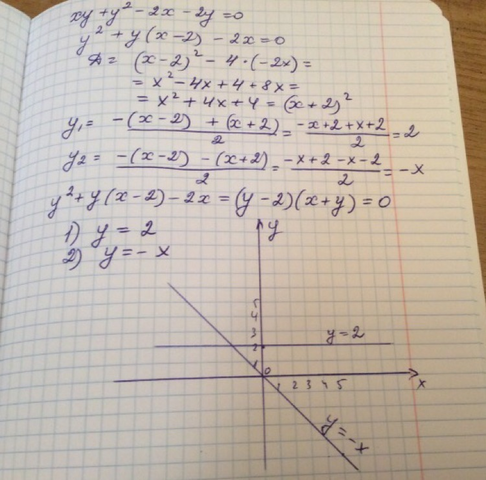 xy + y² - 2x - 2y = 0
y² + y(x-2) - 2x = 0
D = (x-2)² - 4·(-2x) =
= x² - 4x + 4 + 8x =
= x² + 4x + 4 = (x+2)²
y₁ = (-(x-2) + (x+2))/2 = (-x+2+x+2)/2 = 2
y₂ = (-(x-2) - (x+2))/2 = (-x+2-x-2)/2 = -x
y² + y(x-2) - 2x = (y-2)(x+y) = 0
1) y = 2
2) y = -x
y
5
4
3
y=2
2
1
0
1 2 3 4 5
x
y=-x